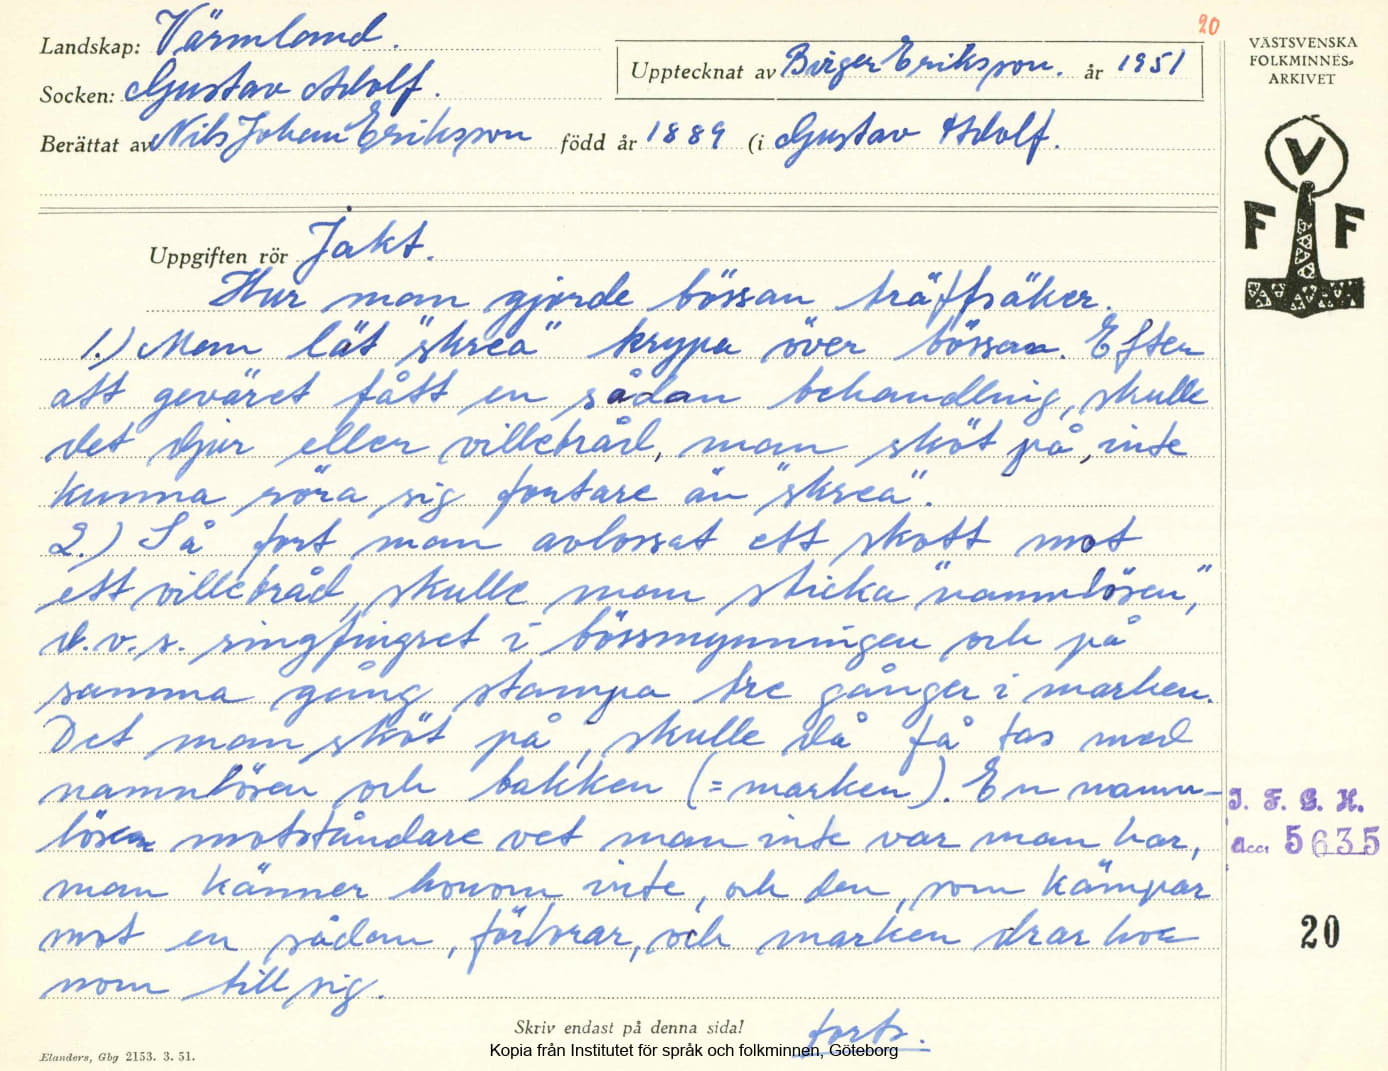 20
Landskap: Värmland.
Socken: Gustav Adolf.
Upptecknat av Birger Eriksson. år 1951
Berättat av Nils Johan Eriksson född år 1889 (i Gustav Adolf.
VÄSTSVENSKA
FOLKMINNES-
ARKIVET
V
F F
Uppgiften rör Jakt.
Hur man gjorde bössan träffsäker.
1.) Man lät "skrea" krypa över bössan. Efter
att geväret fått en sådan behandling, skulle
det djur eller villebråd, man sköt på, inte
kunna röra sig fortare än "skrea".
2.) Så fort man avlossat ett skott mot
ett villebråd, skulle man sticka "namnlösen",
d.v.s. ringfingret i bössmynningen och på
samma gång stampa tre gånger i marken.
Det man sköt på, skulle då få tas med
namnlösen och bakken (= marken). En namn-
lösen motståndare vet man inte var man har,
man känner honom inte, och den, som kämpar
mot en sådan, förlorar, och marken drar ho-
nom till sig.
I. F. G. H.
Acc. 5635
20
Skriv endast på denna sida!
forts.
Elanders, Gbg 2153. 3. 51.
Kopia från Institutet för språk och folkminnen, Göteborg